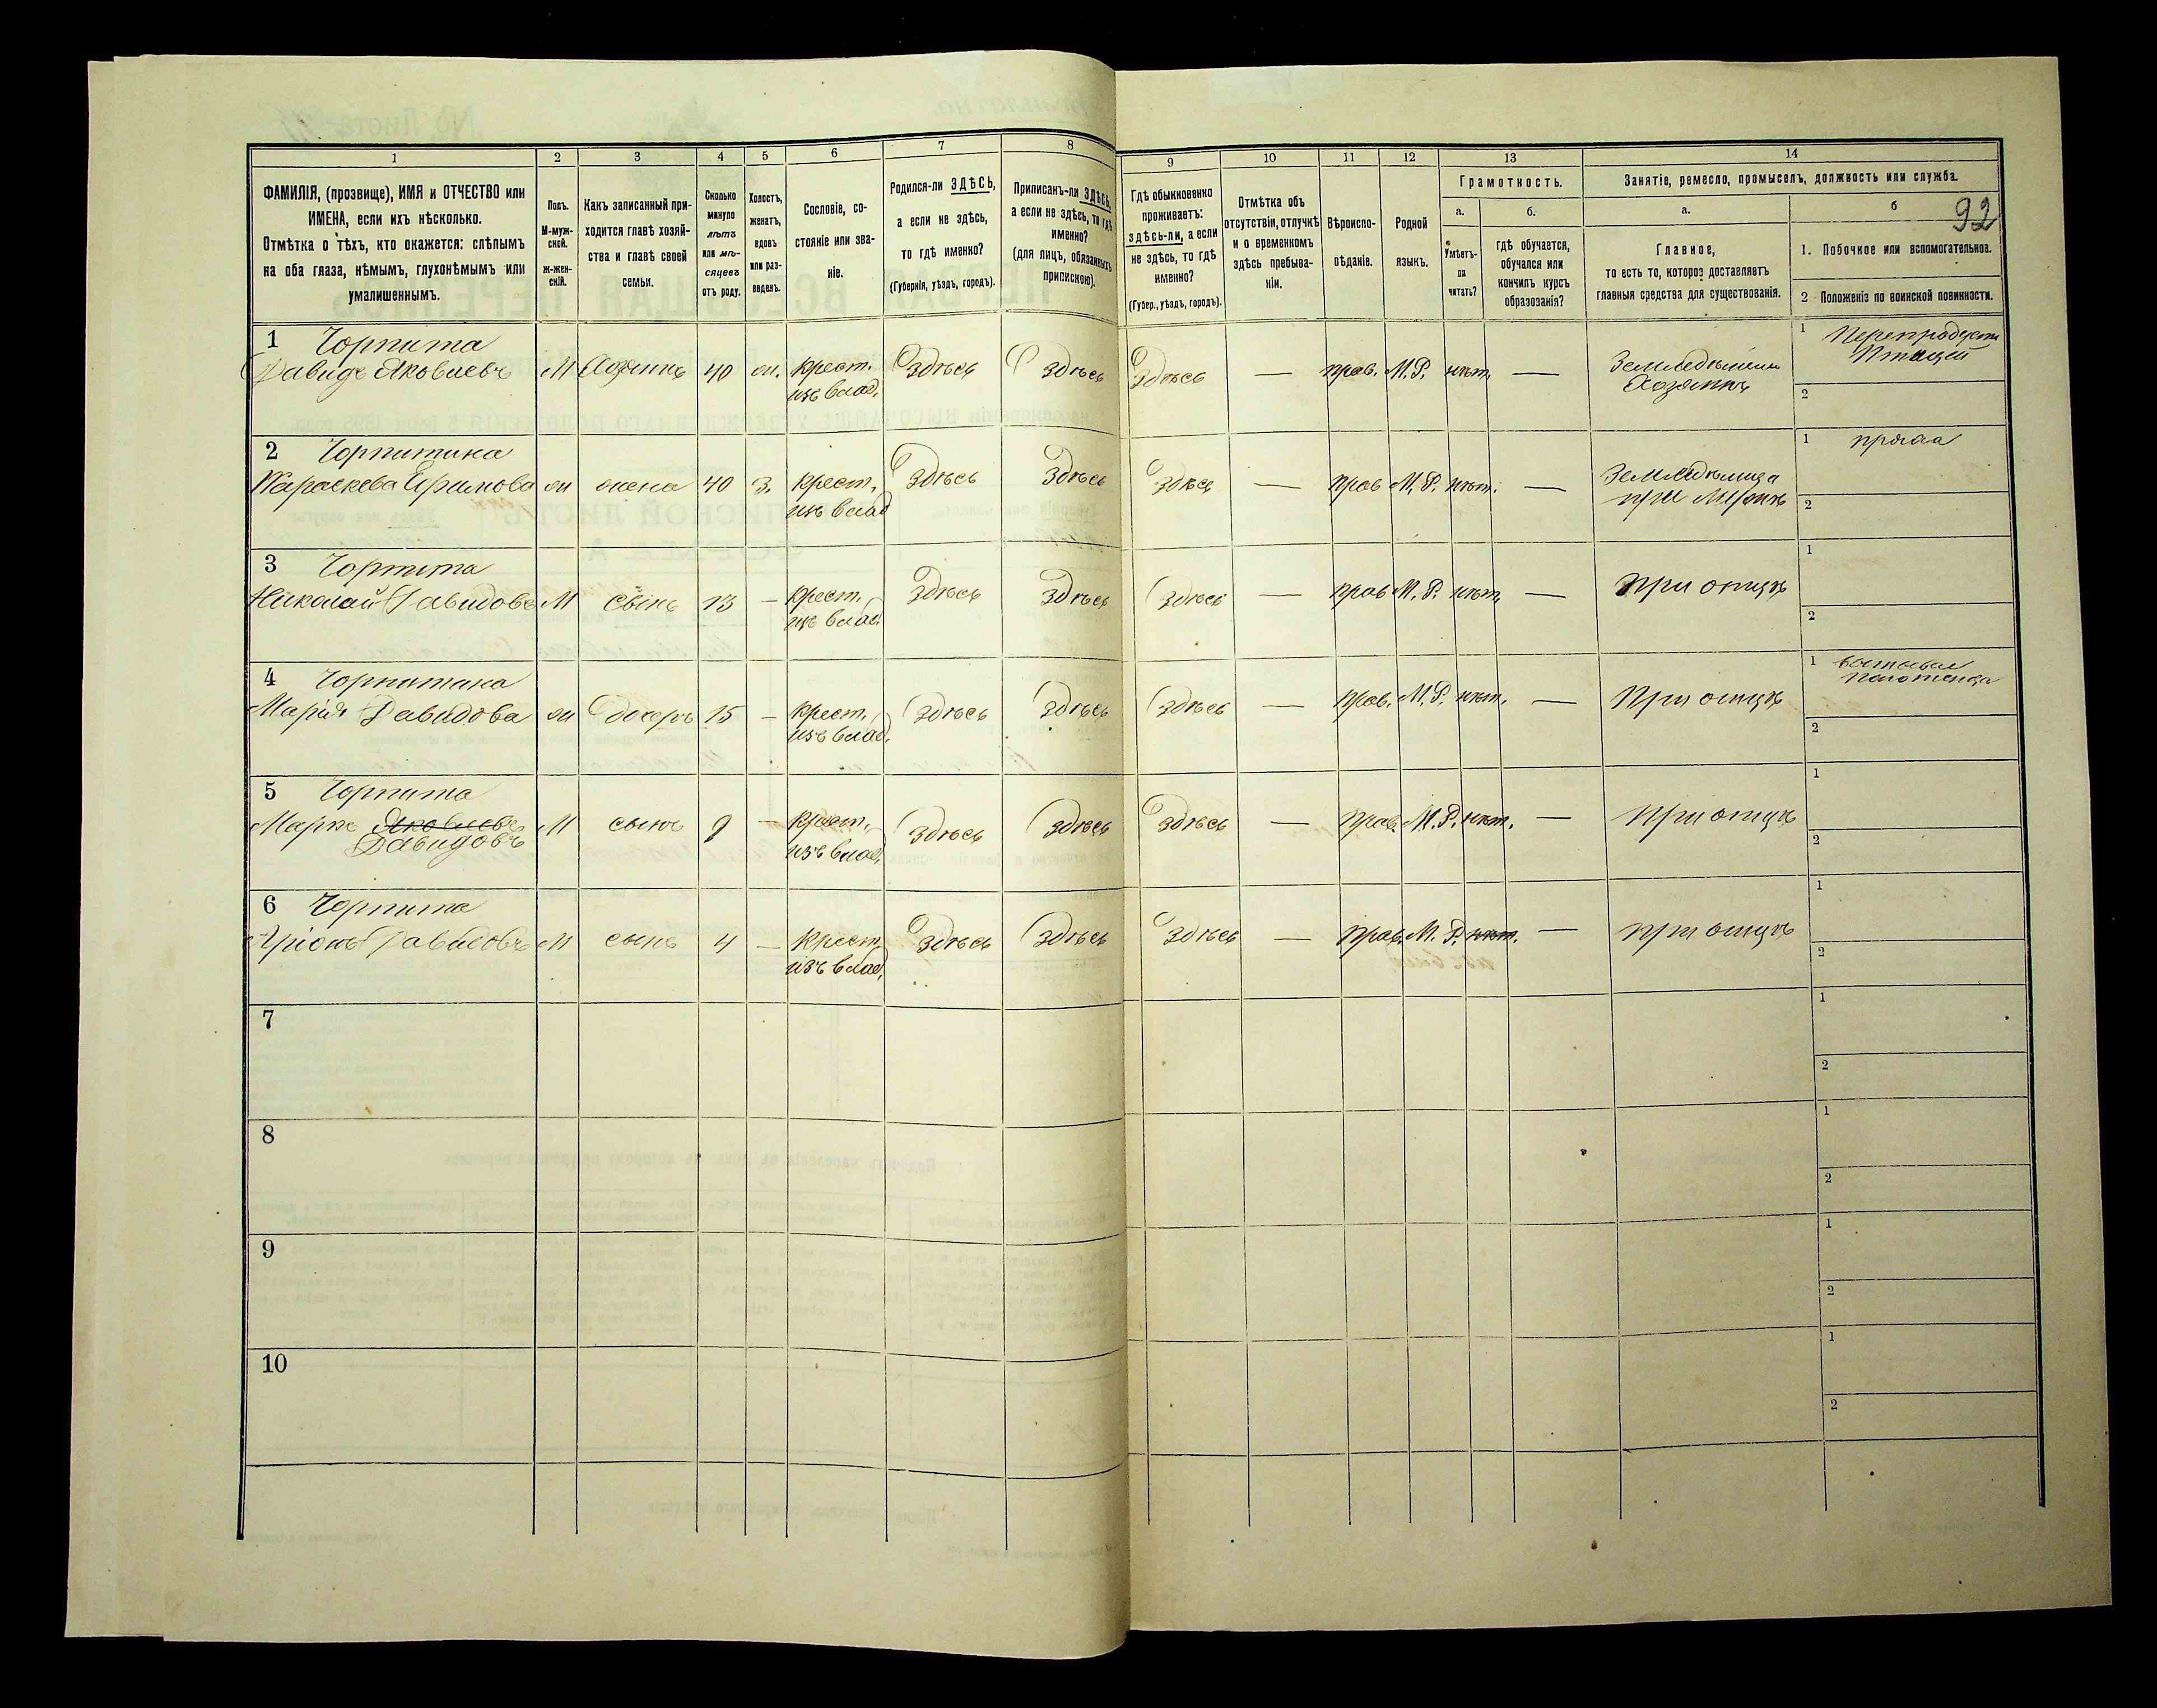 92
1 2 3 4 5 6 7 8 9 10 11 12 13 14
ФАМИЛІЯ, (прозвище), ИМЯ и ОТЧЕСТВО или
ИМЕНА, если ихъ нѣсколько.
Отмѣтка о тѣхъ, кто окажется: слѣпымъ
на оба глаза, нѣмымъ, глухонѣмымъ или
умалишеннымъ.
Полъ.
М-муж-
ской.
Ж-жен-
скій.
Какъ записанный при-
ходится главѣ хозяй-
ства и главѣ своей
семьи.
Сколько
минуло
лѣтъ
или мѣ-
сяцевъ
отъ роду.
Холостъ,
женатъ,
вдовъ
или раз-
веденъ.
Сословіе, со-
стояніе или зва-
ніе.
Родился-ли ЗДѢСЬ,
а если не здѣсь,
то гдѣ именно?
(Губернія, уѣздъ, городъ).
Приписанъ-ли ЗДѢСЬ,
а если не здѣсь, то гдѣ
именно?
(для лицъ, обязанныхъ
припискою).
Гдѣ обыкновенно
проживаетъ:
здѣсь-ли, а если
не здѣсь, то гдѣ
именно?
(Губер., уѣздъ, городъ).
Отмѣтка объ
отсутствіи, отлучкѣ
и о временномъ
здѣсь пребыва-
ніи.
Вѣроиспо-
вѣданіе.
Родной
языкъ.
Грамотность.
а.
Умѣетъ-
ли
читать?
б.
гдѣ обучается,
обучался или
кончилъ курсъ
образованія?
Занятіе, ремесло, промыселъ, должность или служба.
а.
Главное,
то есть то, которое доставляетъ
главныя средства для существованія.
б
1. Побочное или вспомогательное.
2 Положеніе по воинской повинности.
1 Чорпита
Давидъ Яковлевъ М Хозяинъ 40 ж. крест. Здѣсь Здѣсь Здѣсь — прав. М.Р. нѣт. —
изъ влад.
Хозяинъ
1
Птицей
2
2 Чорпитина
Параскева Ефимова ж жена 40 З. крест. Здѣсь Здѣсь Здѣсь — прав М.Р. нѣт. —
изъ влад
при Мужѣ
1 пряха
2
3 Чорпита
Николай Давидовъ М сынъ 13 — крест. Здѣсь Здѣсь Здѣсь — прав М.Р. нѣт. — При отцѣ
изъ влад.
1
2
4 Чорпитина
Марія Давидова ж дочерь 15 — крест. Здѣсь Здѣсь Здѣсь — прав. М.Р. нѣт. — При отцѣ
изъ влад.
1
2
5 Чорпита
Марко Яковлевъ М сынъ 9 — крест. Здѣсь Здѣсь Здѣсь — прав. М.Р. нѣт. — При отцѣ
Давидовъ изъ влад.
1
2
6 Чорпита
Давидовъ М сынъ 4 — крест. Здѣсь Здѣсь Здѣсь — прав. М.Р. нѣт. — При отцѣ
изъ влад.
1
2
7
1
2
8
1
2
9
1
2
10
1
2